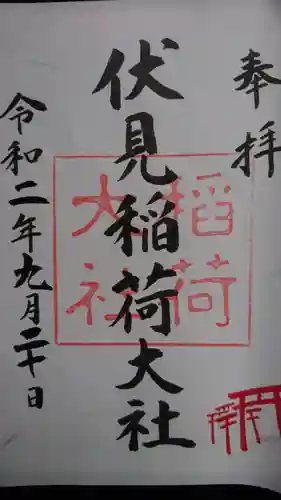 奉拝
伏見稲荷大社
令和二年九月二十日
稲荷
大社